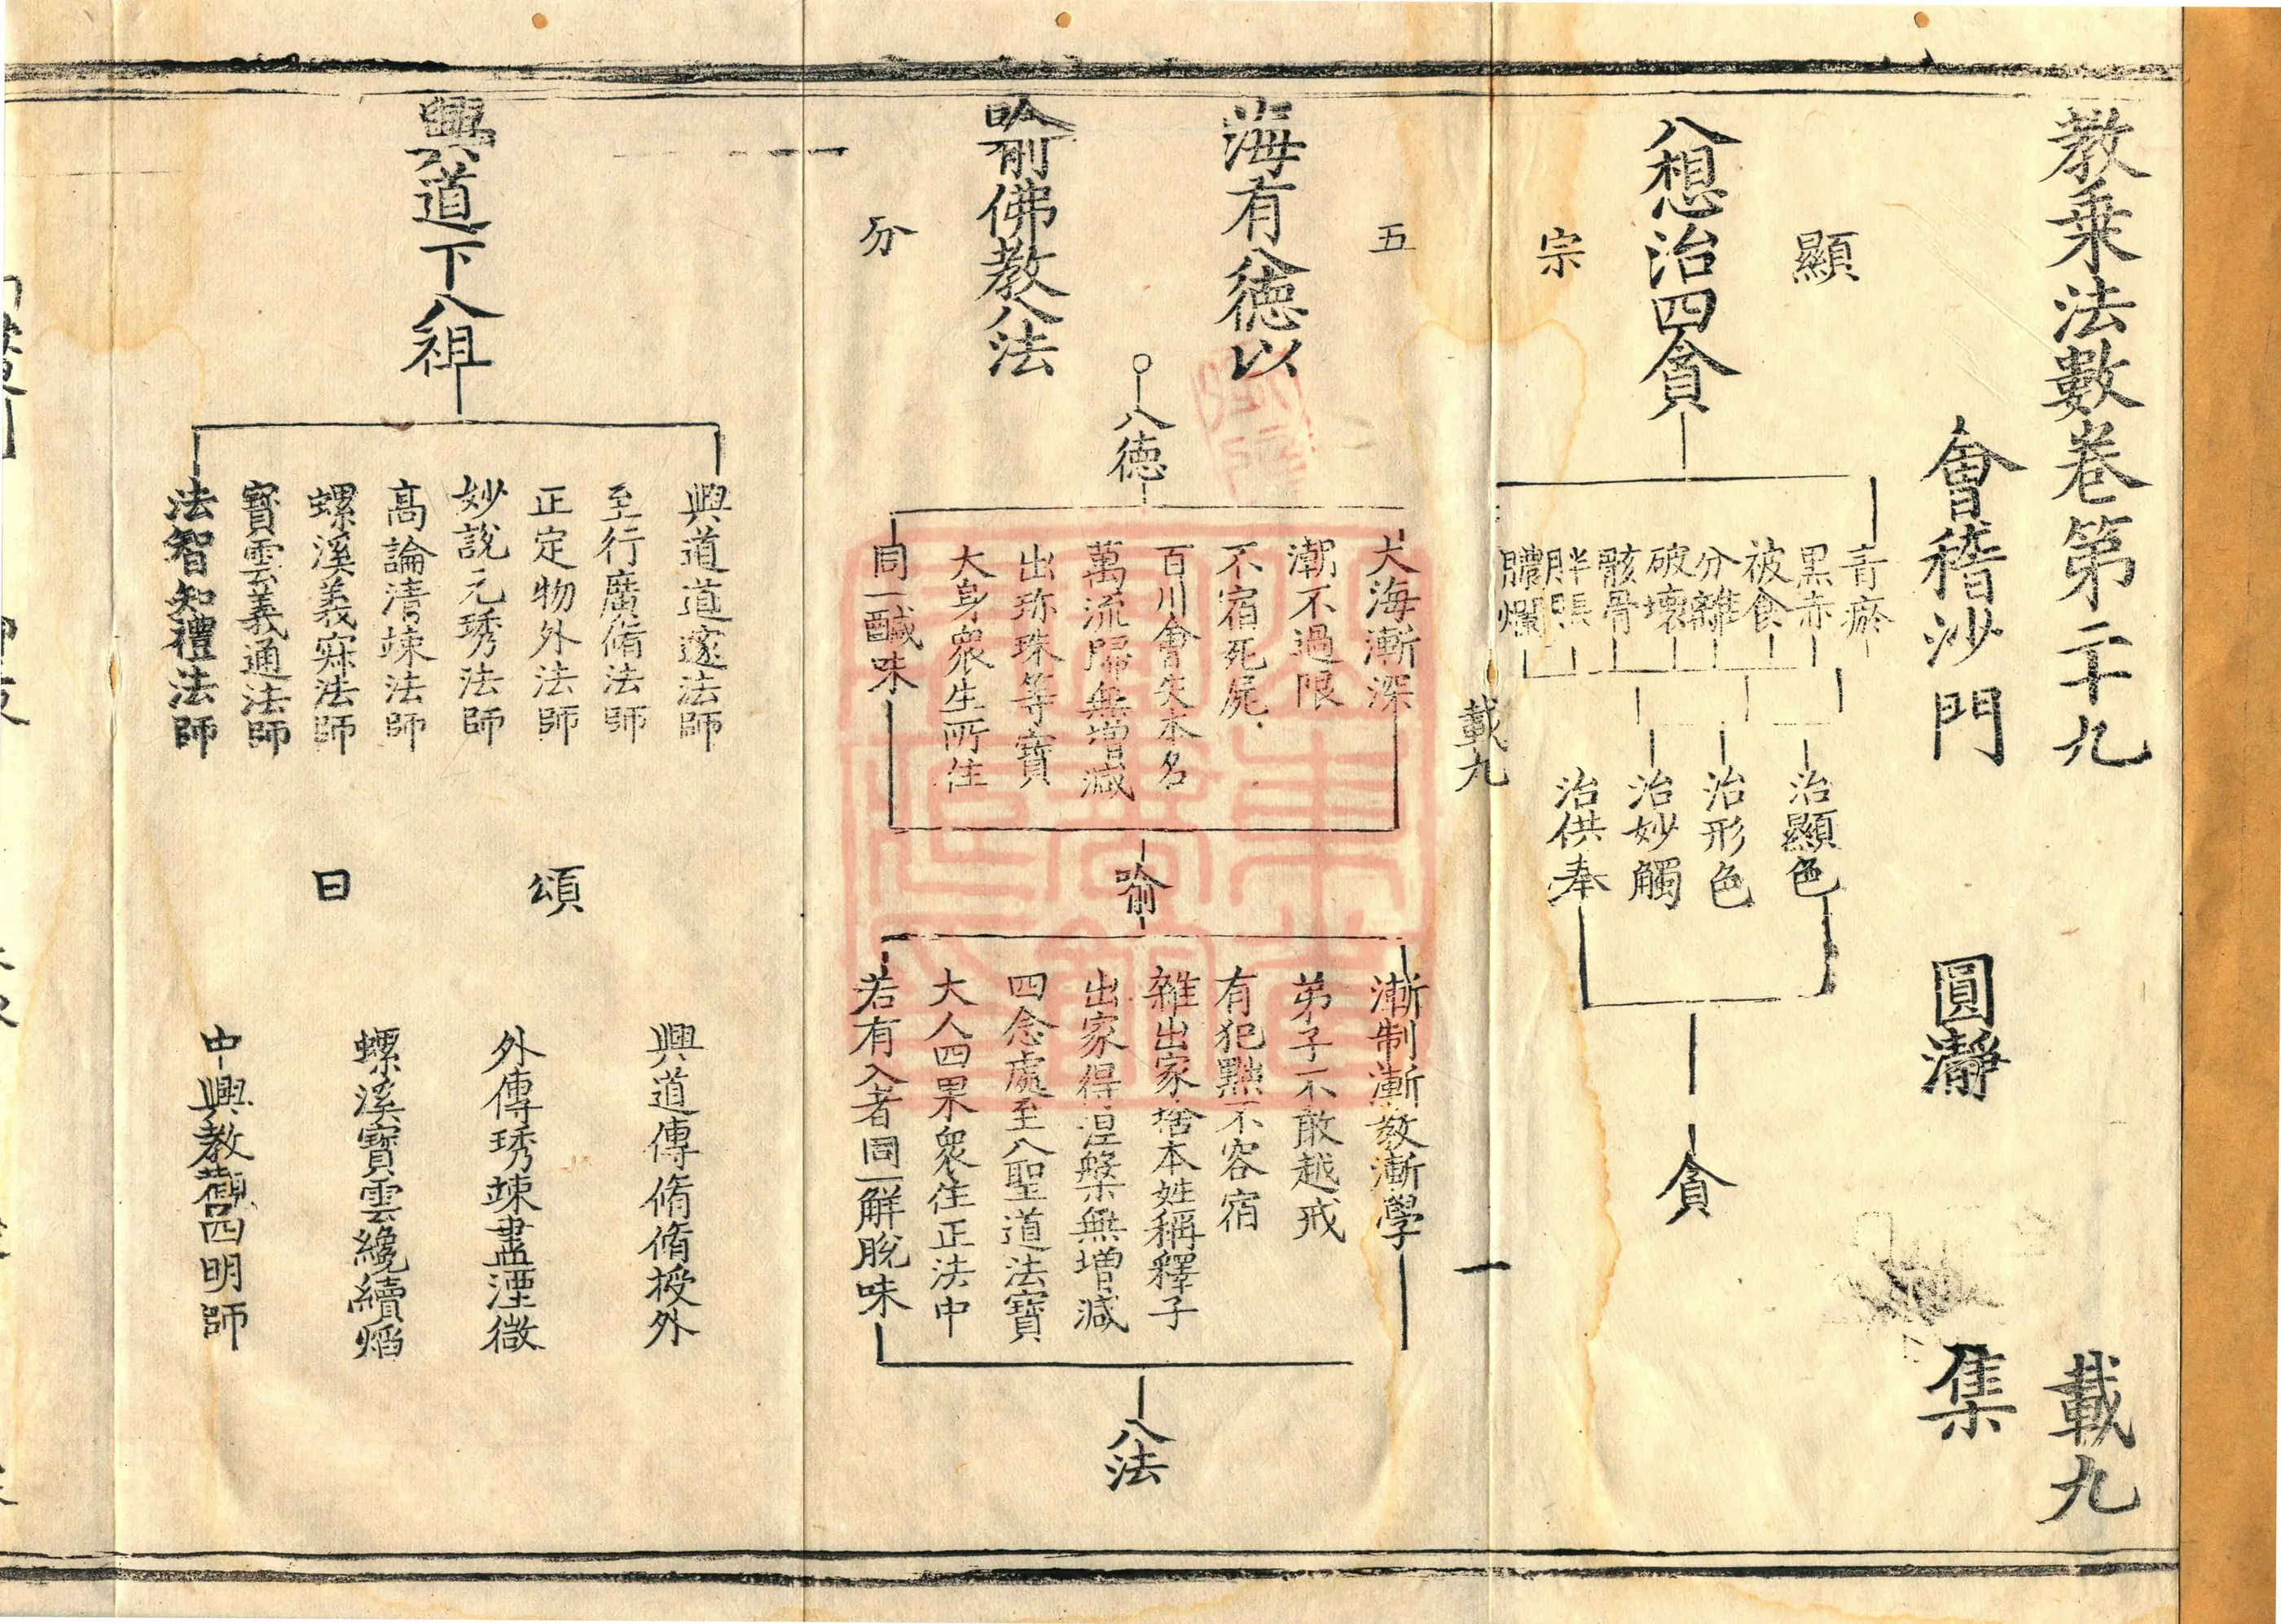 教乘法數卷第二十九
載九
會稽沙門
圓瀞
集
顯
宗
八想治四貪
青瘀
黑赤
被食
分離
破壞
骸骨
胖脹
膿爛
治顯色
治形色
治妙觸
治供奉
貪
載九
一
五
分
海有八德以
喻佛教八法
八德
大海漸深
潮不過限
不宿死屍
百川會失本名
萬流歸無增減
出珎珠等寶
大身衆生所住
同一醎味
喻
漸制漸教漸學
弟子不敢越戒
有犯黜不容宿
雜出家捨本姓稱釋子
出家得涅槃無增減
四念處至八聖道法寶
大人四果衆住正法中
若有入者同一解脫味
八法
興道下八祖
興道道邃法師
至行廣脩法師
正定物外法師
妙說元琇法師
高論清竦法師
螺溪義寂法師
寶雲義通法師
法智知禮法師
頌
曰
興道傳脩脩授外
外傳琇竦盡湮微
螺溪寶雲纔續焰
中興教觀四明師